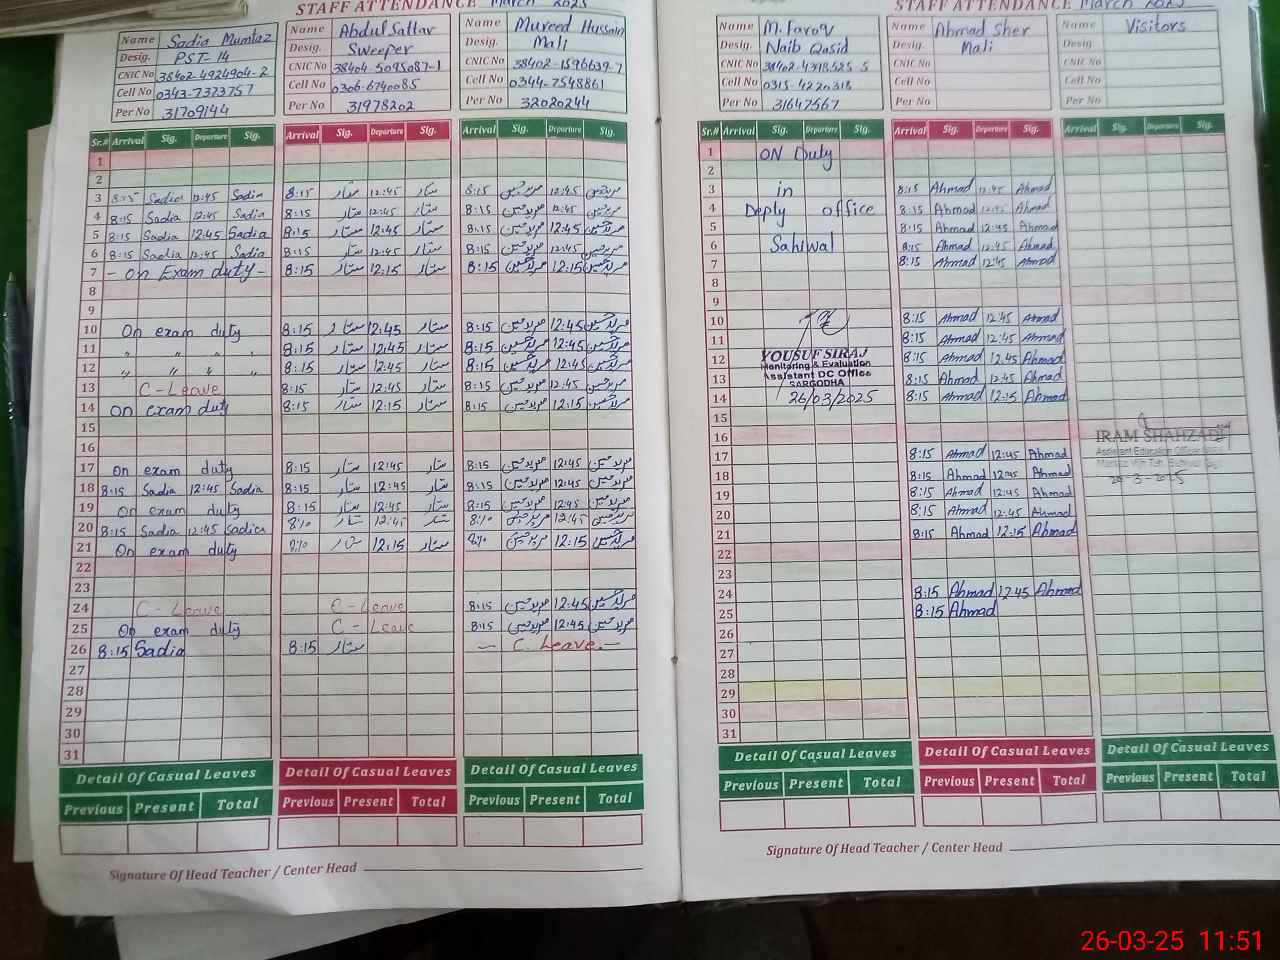 STAFF ATTENDANCE March 2025
Name Sadia Mumtaz
Desig. PST-14
CNIC No 38402-4924904-2
Cell No 0343-7323757
Per No 31709144
Name Abdul Sattar
Desig. Sweeper
CNIC No 38404-5095087-1
Cell No 0306-6740085
Per No 31978202
Name Mureed Hussain
Desig. Mali
CNIC No 38402-1596639-7
Cell No 0344-7548861
Per No 32020244
Sr.# Arrival Sig. Departure Sig. Arrival Sig. Departure Sig. Arrival Sig. Departure Sig.
1
2
3 8:15 Sadia 12:45 Sadia 8:15 ستار 12:45 ستار 8:15 12:45
4 8:15 Sadia 12:45 Sadia 8:15 ستار 12:45 ستار 8:15 12:45
5 8:15 Sadia 12:45 Sadia 8:15 ستار 12:45 ستار 8:15 12:45
6 8:15 Sadia 12:45 Sadia 8:15 ستار 12:45 ستار 8:15 12:45
7 - On Exam duty - 8:15 ستار 12:15 ستار 8:15 12:15
8
9
10 On exam duty 8:15 ستار 12:45 ستار 8:15 12:45
11 " " " " 8:15 ستار 12:45 ستار 8:15 12:45
12 " " " " 8:15 ستار 12:45 ستار 8:15 12:45
13 C-Leave 8:15 ستار 12:45 ستار 8:15 12:45
14 On exam duty 8:15 ستار 12:15 ستار 8:15 12:15
15
16
17 On exam duty 8:15 ستار 12:45 ستار 8:15 12:45
18 8:15 Sadia 12:45 Sadia 8:15 ستار 12:45 ستار 8:15 12:45
19 On exam duty 8:15 ستار 12:45 ستار 8:15 12:45
20 8:15 Sadia 12:45 Sadia 8:10 ستار 12:45 ستار 8:10 12:45
21 On exam duty 8:10 ستار 12:15 ستار 8:10 12:15
22
23
24 C-Leave C-Leave 8:15 12:45
25 On exam duty C-Leave 8:15 12:45
26 8:15 Sadia 8:15 ستار - C. Leave. -
27
28
29
30
31
Detail Of Casual Leaves Detail Of Casual Leaves Detail Of Casual Leaves
Previous Present Total Previous Present Total Previous Present Total
Signature Of Head Teacher / Center Head
STAFF ATTENDANCE March 2025
Name M. Farooq
Desig. Naib Qasid
CNIC No 38402-4398525-5
Cell No 0315-4220318
Per No 31647567
Name Ahmad Sher
Desig. Mali
CNIC No
Cell No
Per No
Name Visitors
Desig.
CNIC No
Cell No
Per No
Sr.# Arrival Sig. Departure Sig. Arrival Sig. Departure Sig. Arrival Sig. Departure Sig.
1 ON Duty
2
3 in 8:15 Ahmad 12:45 Ahmad
4 Depty office 8:15 Ahmad 12:45 Ahmad
5 8:15 Ahmad 12:45 Ahmad
6 Sahiwal 8:15 Ahmad 12:45 Ahmad
7 8:15 Ahmad 12:45 Ahmad
8
9
10 8:15 Ahmad 12:45 Ahmad
11 8:15 Ahmad 12:45 Ahmad
12 YOUSUF SIRAJ 8:15 Ahmad 12:45 Ahmad
Monitoring & Evaluation
13 Assistant DC Office 8:15 Ahmad 12:45 Ahmad
SARGODHA
14 26/03/2025 8:15 Ahmad 12:15 Ahmad
15
16 IRAM SHAHZADI
17 8:15 Ahmad 12:45 Ahmad Assistant Education Officer
18 8:15 Ahmad 12:45 Ahmad
19 8:15 Ahmad 12:45 Ahmad
20 8:15 Ahmad 12:45 Ahmad
21 8:15 Ahmad 12:15 Ahmad
22
23
24 8:15 Ahmad 12:45 Ahmad
25 8:15 Ahmad
26
27
28
29
30
31
Detail Of Casual Leaves Detail Of Casual Leaves Detail Of Casual Leaves
Previous Present Total Previous Present Total Previous Present Total
Signature Of Head Teacher / Center Head
26-03-25 11:51